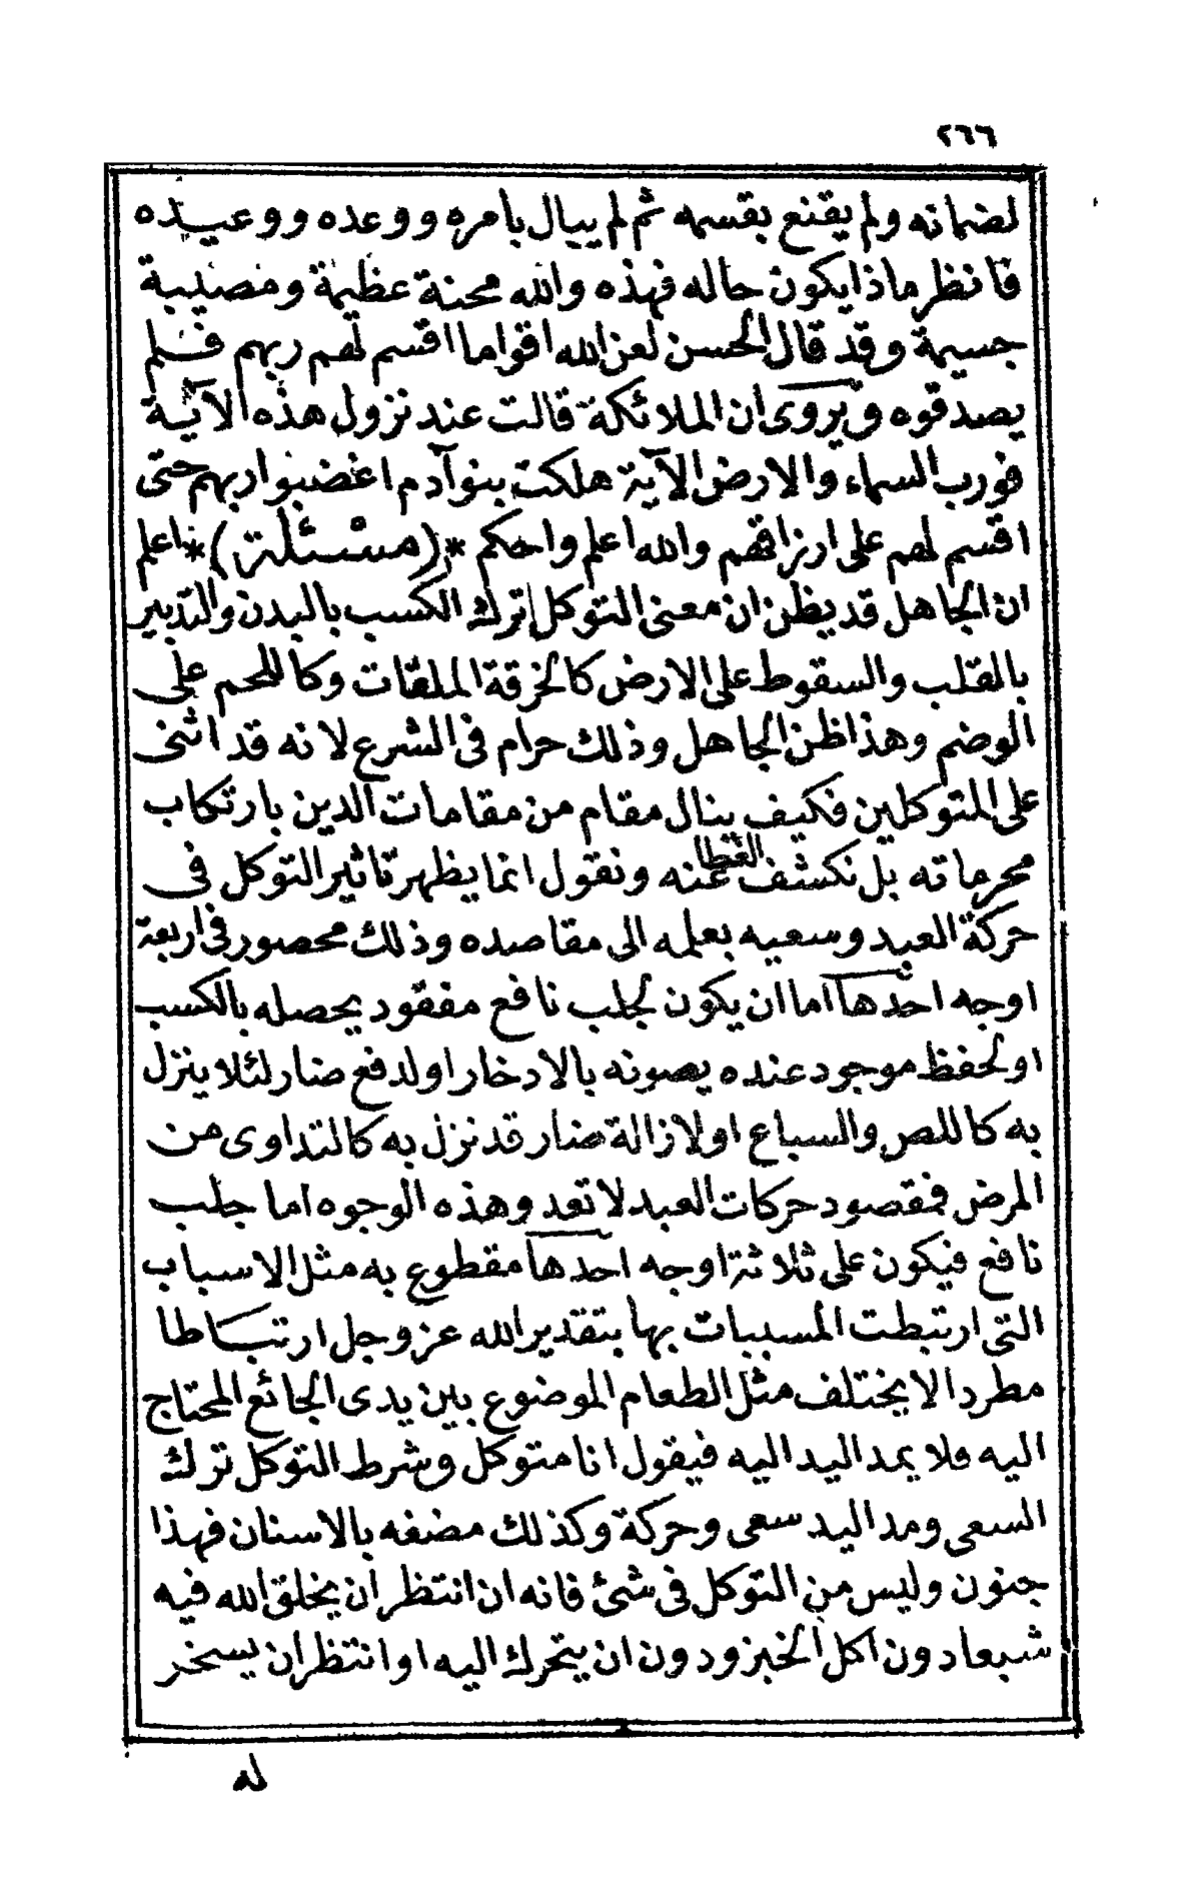 ٢٦٦
لضمانه ولم يقنع بقسمه ثم لم يبال بامره ووعده ووعيده
فانظر ماذا يكون حاله فهذه والله محنة عظيمة ومصيبة
جسيمة وقد قال الحسن لعن الله اقواما اقسم لهم ربهم فلم
يصدقوه ويروى ان الملائكة قالت عند نزول هذه الآية
فورب السماء والارض الآية هلكت بنو آدم اغضبوا ربهم حتى
اقسم لهم على ارزاقهم والله اعلم واحكم *(مسئلة)* اعلم
ان الجاهل قد يظن ان معنى التوكل ترك الكسب بالبدن والتدبير
بالقلب والسقوط على الارض كالخرقة الملقات وكاللحم على
الوضم وهذا ظن الجاهل وذلك حرام فى الشرع لانه قد اثنى
على المتوكلين فكيف ينال مقام من مقامات الدين بارتكاب
محرماته بل نكشف الغطا عنه ونقول انما يظهر تاثير التوكل فى
حركة العبد وسعيه بعلمه الى مقاصده وذلك محصور فى اربعة
اوجه احدها اما ان يكون لجلب نافع مفقود يحصله بالكسب
او لحفظ موجود عنده يصونه بالادخار او لدفع ضار لئلا ينزل
به كاللص والسباع او لازالة ضار قد نزل به كالتداوى من
المرض فمقصود حركات العبد لا تعد وهذه الوجوه اما جلب
نافع فيكون على ثلاثة اوجه احدها مقطوع به مثل الاسباب
التى ارتبطت المسببات بها بتقدير الله عز وجل ارتباطا
مطردا لا يختلف مثل الطعام الموضوع بين يدى الجائع المحتاج
اليه فلا يمد اليد اليه فيقول انا متوكل وشرط التوكل ترك
السعى ومد اليد سعى وحركة وكذلك مضغه بالاسنان فهذا
جنون وليس من التوكل فى شئ فانه ان انتظر ان يخلق الله فيه
شبعا دون اكل الخبز ودون ان يتحرك اليه او انتظر ان يسخر
له